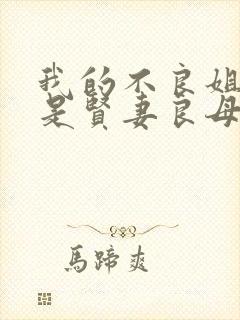 我的不良姐
是賢妻良母
馬蹄爽